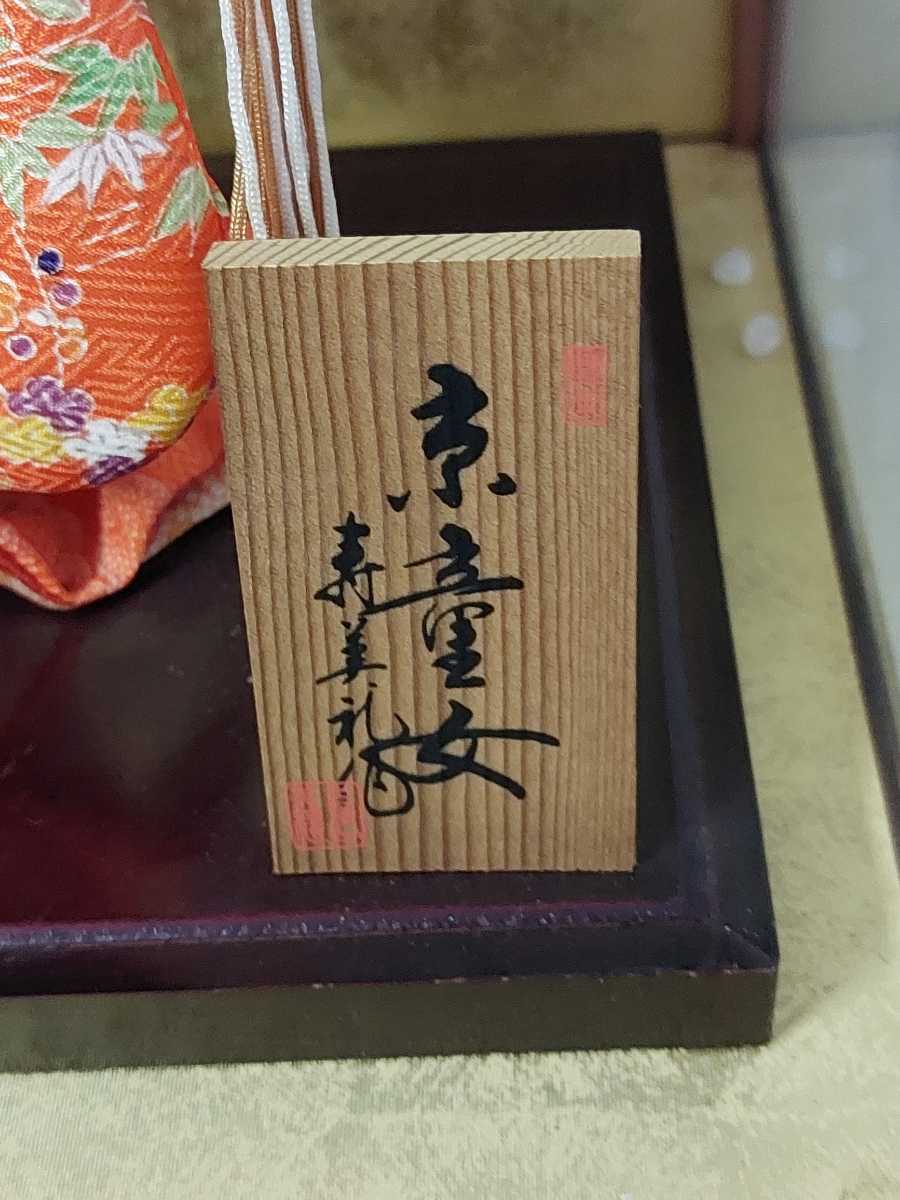 京童女
寿美礼作